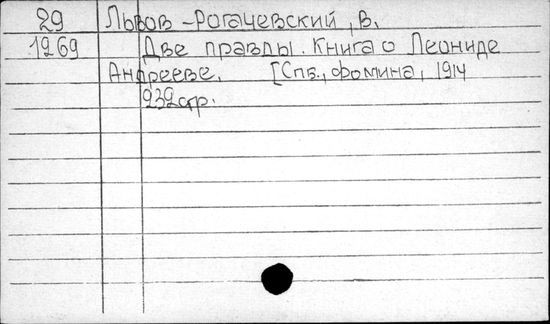 29 Львов-Рогачевский, В.
1269 Две правды. Книга о Леониде
Андрееве. [Спб., Фомина, 1914
232стр.